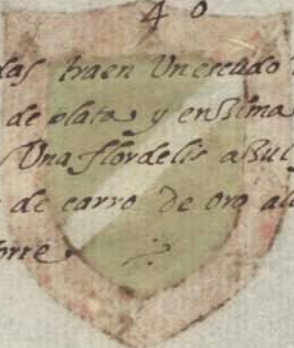 4 0
das traen Un escudo
de plata y ensima
Una flordelis asul
de carro de oro al
orre